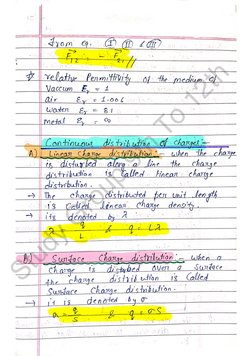 From eq. I II & III
F⃗12 = - F⃗21
# relative Permittivity of the medium of
Vaccum εr = 1
air εr = 1.006
water εr = 81
metal εr = ∞
Continuous distribution of charges :-
A) Linear charge distribution :- when the charge
is disturbed along a line the charge
distribution is called linear charge
distribution.
→ The charge distributed per unit length
is called linear charge density.
→ its denoted by λ
λ = q/L & q = Lλ
B) Surface Charge distribution :- when a
Charge is distubed over a Surface
the charge distribution is Called
Surface Charge distribution.
→ is is denoted by σ
σ = q/S & q = σS
Study To 12th